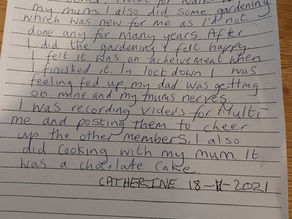 my mum I also did some gardening
which was new for me as I'd not
done any for many years. After
I did the gardening I felt happy
I felt it was an acheivement when
finished it. In lockdown I was
feeling fed up, my dad was getting
on mine and my mums nerves.
I was recording videos for Multi
me and posting them to cheer
up the other members, I also
did cooking with my mum It
was a chocolate cake.
CATHERINE 18-11-2021